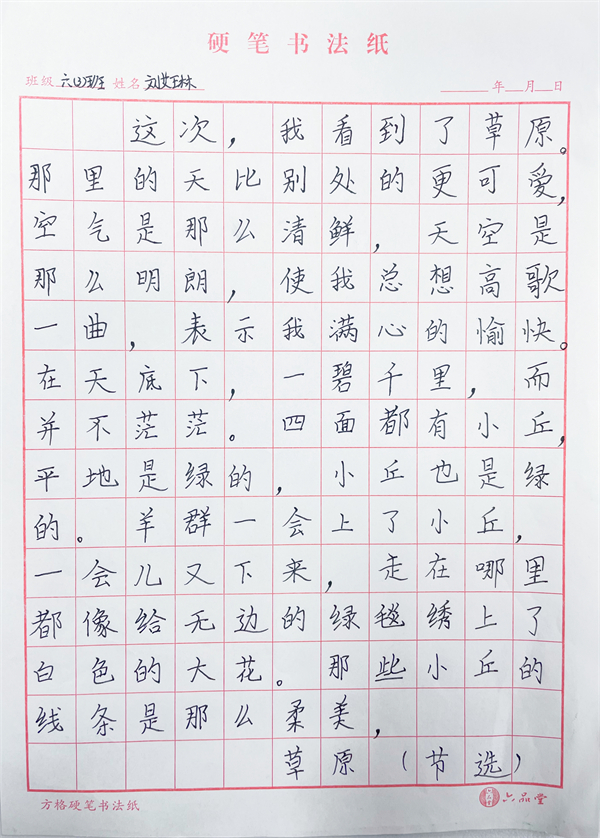 硬笔书法纸
班级 六(3)班 姓名 刘艾琳 年 月 日
这次，我看到了草原。
那里的天比别处的更可爱，
空气是那么清鲜，天空是
那么明朗，使我总想高歌
一曲，表示我满心的愉快。
在天底下，一碧千里，而
并不茫茫。四面都有小丘，
平地是绿的，小丘也是绿
的。羊群一会上了小丘，
一会儿又下来，走在哪里
都像给无边的绿毯绣上了
白色的大花。那些小丘的
线条是那么柔美，
草原（节选）
方格硬笔书法纸 六品堂